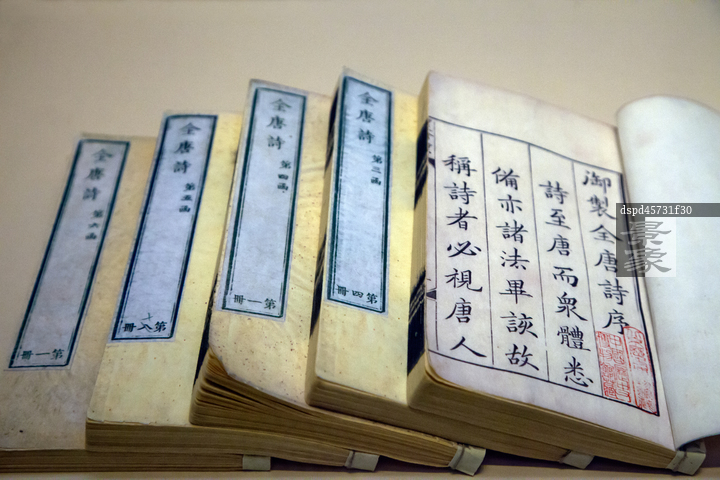 御製全唐詩序
詩至唐而衆體悉
備亦諸法畢該故
稱詩者必視唐人
全唐詩
第三函
第四冊
全唐詩
第四函
第一冊
全唐詩
第五函
第八冊
全唐詩
第六函
第一冊
dspd45731f30
景象